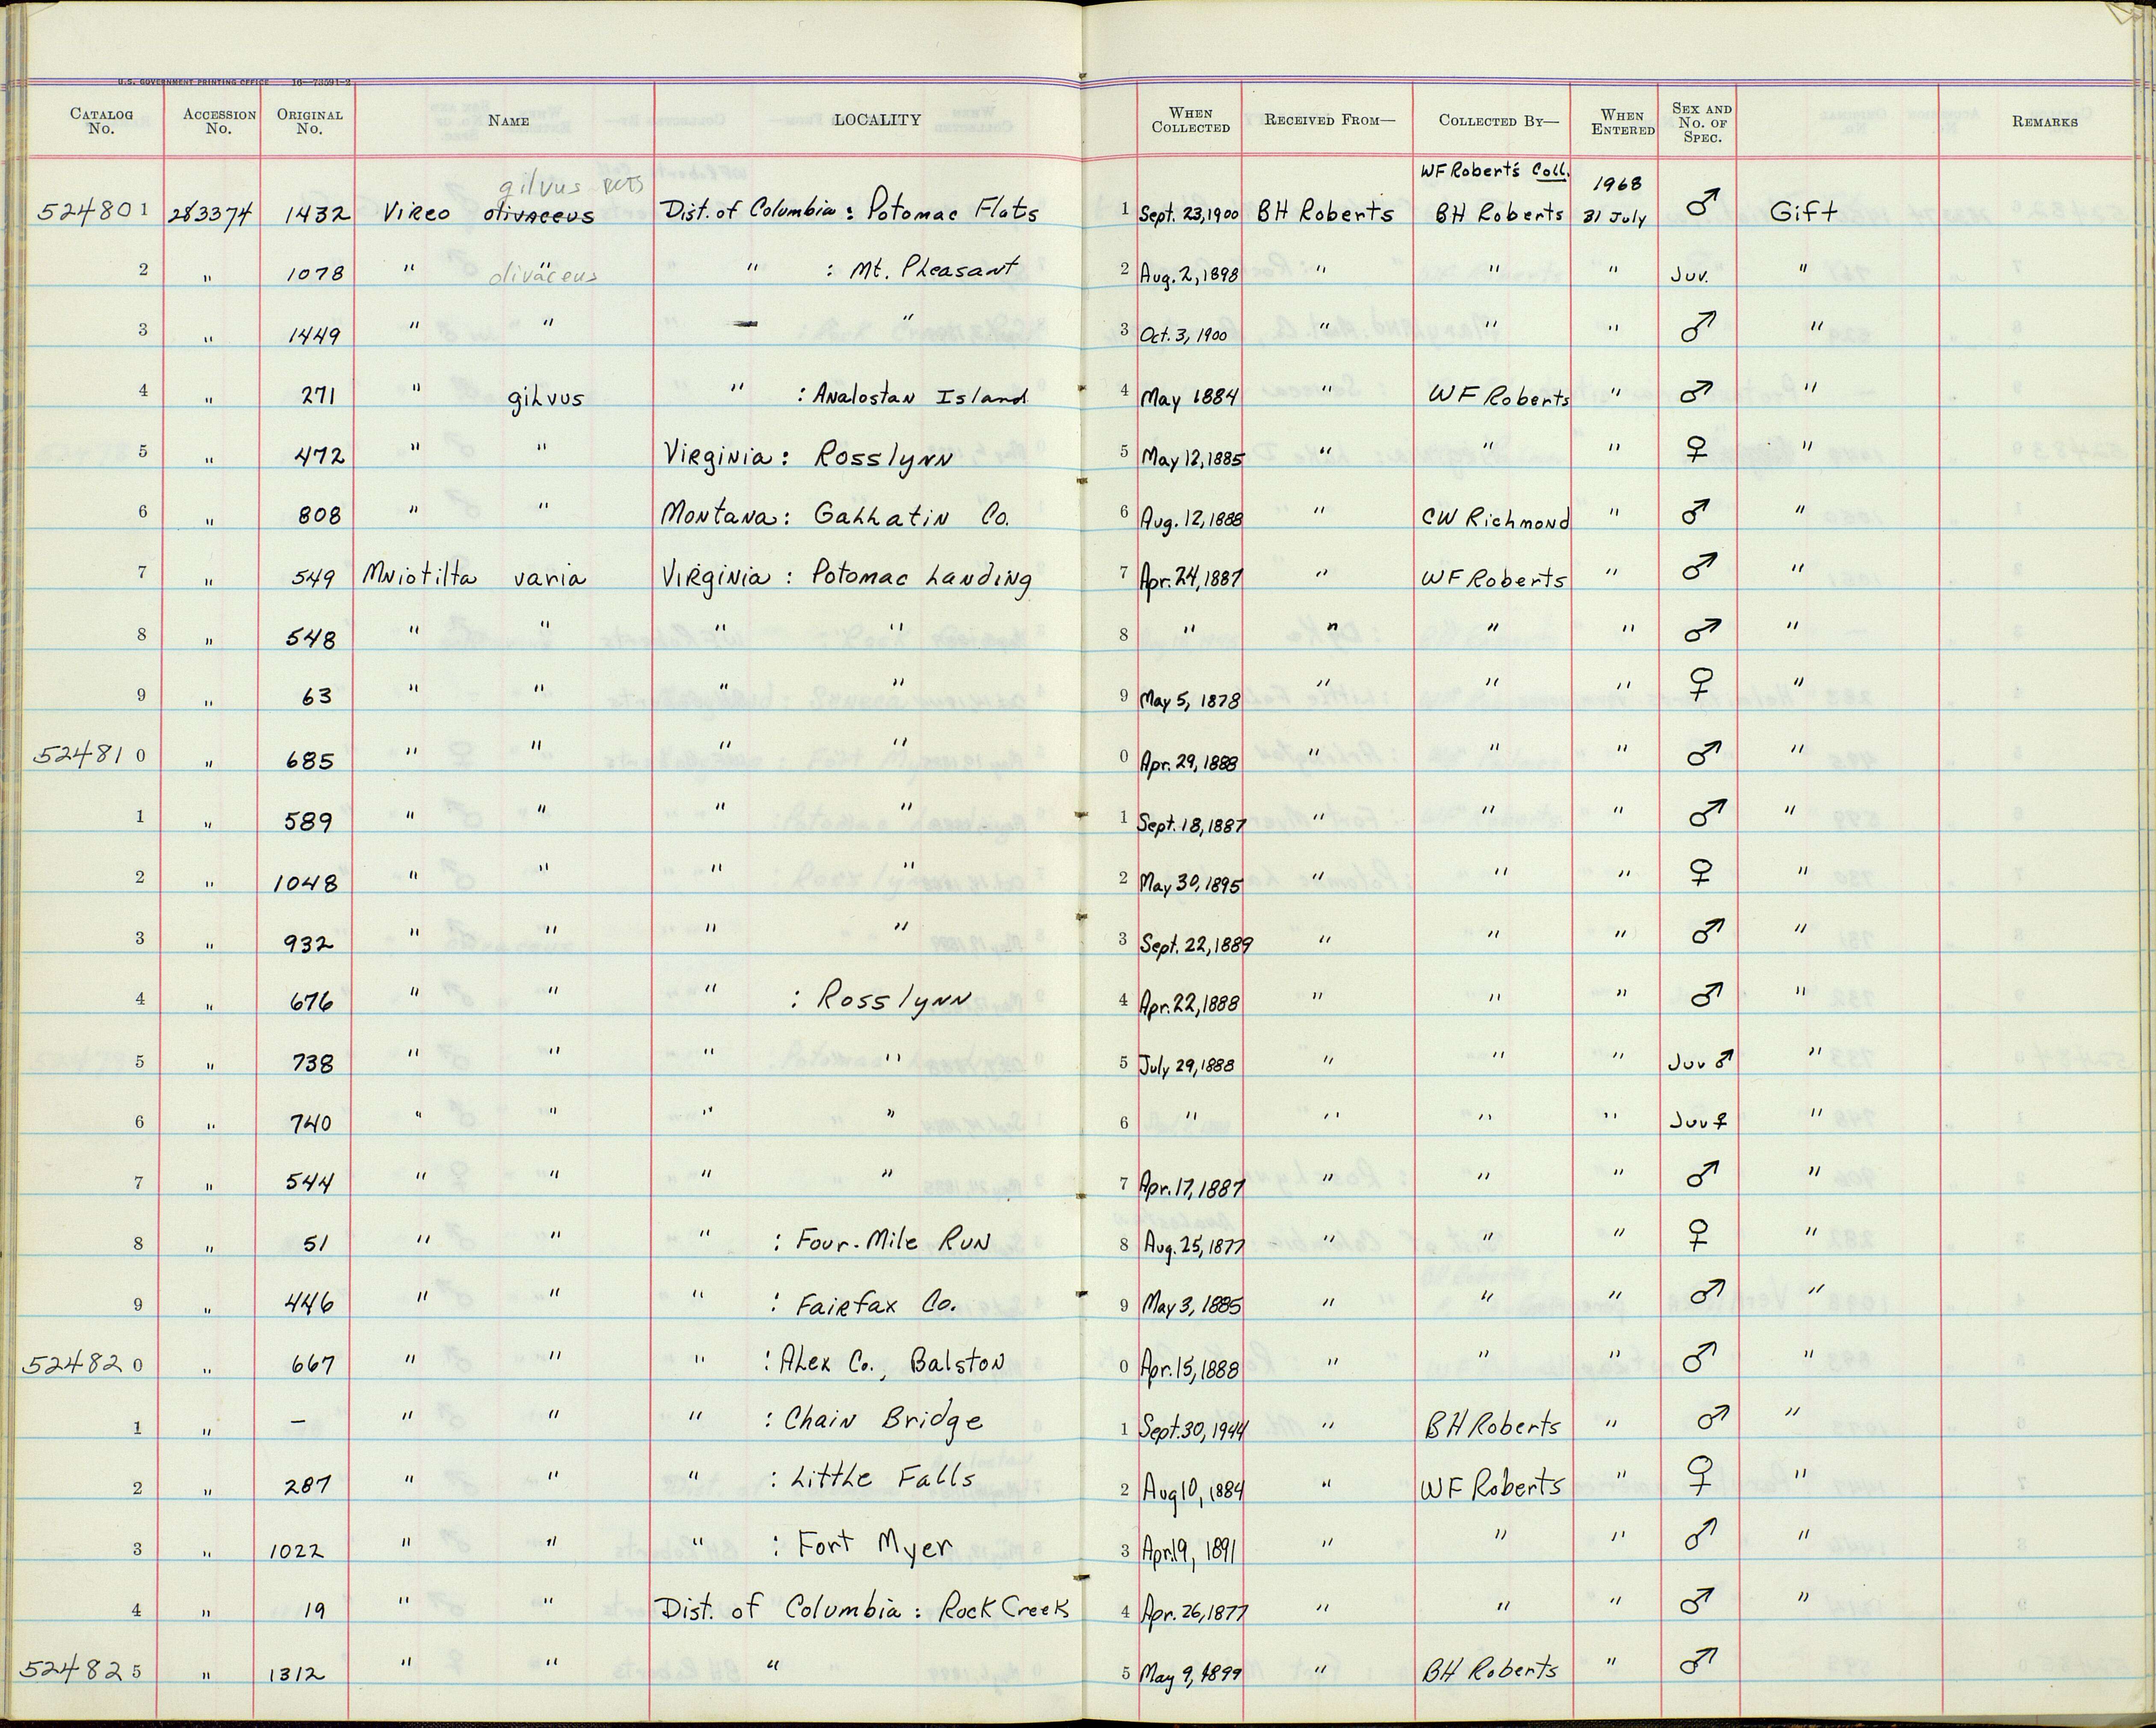 U.S. GOVERNMENT PRINTING OFFICE 16—73591-2
CATALOG No. ACCESSION No. ORIGINAL No. NAME LOCALITY WHEN COLLECTED RECEIVED FROM— COLLECTED BY— WHEN ENTERED SEX AND No. OF SPEC. REMARKS
gilvus WF Robert's Coll. 1968
524801 283374 1432 Vireo olivaceus Dist. of Columbia : Potomac Flats 1 Sept. 23, 1900 BH Roberts BH Roberts 31 July ♂ Gift
2 " 1078 " " olivaceus " : Mt. Pleasant 2 Aug. 2, 1898 " " " Juv. "
3 " 1449 " " — " 3 Oct. 3, 1900 " " " ♂ "
4 " 271 " gilvus " : Analostan Island 4 May 1884 " WF Roberts " ♂ "
5 " 472 " " Virginia : Rosslynn 5 May 12, 1885 " " " ♀ "
6 " 808 " " Montana : Gallatin Co. 6 Aug. 12, 1888 " CW Richmond " ♂ "
7 " 549 Mniotilta varia Virginia : Potomac Landing 7 Apr. 24, 1887 " WF Roberts " ♂ "
8 " 548 " " " " 8 " " " " ♂ "
9 " 63 " " " " 9 May 5, 1878 " " " ♀ "
524810 " 685 " " " " 0 Apr. 29, 1888 " " " ♂ "
1 " 589 " " " " 1 Sept. 18, 1887 " " " ♂ "
2 " 1048 " " " " 2 May 30, 1895 " " " ♀ "
3 " 932 " " " " 3 Sept. 22, 1889 " " " ♂ "
4 " 676 " " " : Rosslynn 4 Apr. 22, 1888 " " " ♂ "
5 " 738 " " " " 5 July 29, 1888 " " " Juv ♂ "
6 " 740 " " " " 6 " " " " Juv ♀ "
7 " 544 " " " " 7 Apr. 17, 1887 " " " ♂ "
8 " 51 " " " : Four-Mile Run 8 Aug. 25, 1877 " " " ♀ "
9 " 446 " " " : Fairfax Co. 9 May 3, 1885 " " " ♂ "
524820 " 667 " " " : Alex Co., Balston 0 Apr. 15, 1888 " " " ♂ "
1 " — " " " : Chain Bridge 1 Sept. 30, 1944 " BH Roberts " ♂ "
2 " 287 " " " : Little Falls 2 Aug 10, 1884 " WF Roberts " ♀ "
3 " 1022 " " " : Fort Myer 3 Apr. 19, 1891 " " " ♂ "
4 " 19 " " Dist. of Columbia : Rock Creek 4 Apr. 26, 1877 " " " ♂ "
524825 " 1312 " " " 5 May 9, 1899 " BH Roberts " ♂